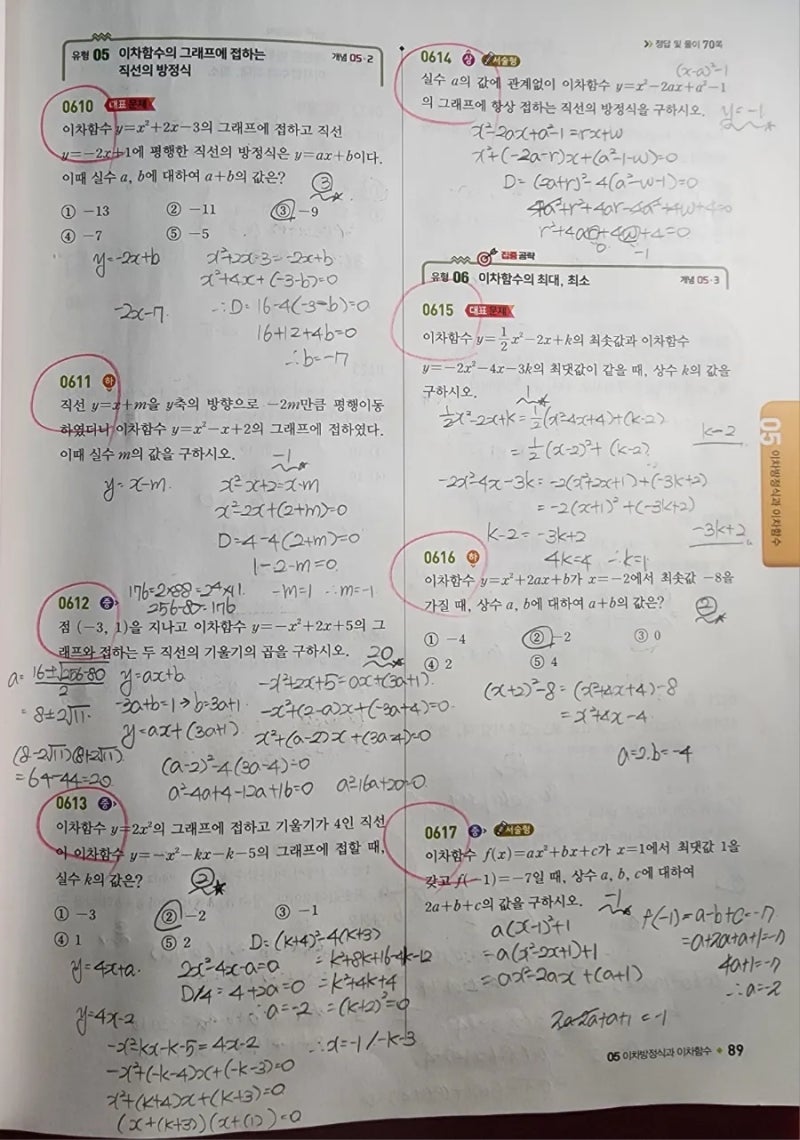 유형 05 이차함수의 그래프에 접하는 직선의 방정식 개념 05·2
0610 대표 문제
이차함수 y=x²+2x-3의 그래프에 접하고 직선
y=-2x+1에 평행한 직선의 방정식은 y=ax+b이다.
이때 실수 a, b에 대하여 a+b의 값은? ③
① -13 ② -11 ③ -9
④ -7 ⑤ -5
y=-2x+b
x²+2x-3=-2x+b
x²+4x+(-3-b)=0
-2x-7
∴D=16-4(-3-b)=0
16+12+4b=0
∴b=-7
0611 하
직선 y=x+m을 y축의 방향으로 -2m만큼 평행이동
하였더니 이차함수 y=x²-x+2의 그래프에 접하였다.
이때 실수 m의 값을 구하시오. -1
y=x-m
x²-x+2=x-m
x²-2x+(2+m)=0
D=4-4(2+m)=0
1-2-m=0
-m=1 ∴m=-1
0612 중
176=2×88=2⁴×11
256-80=176
점 (-3, 1)을 지나고 이차함수 y=-x²+2x+5의 그
래프와 접하는 두 직선의 기울기의 곱을 구하시오. 20
a=16±√256-80/2
=8±2√11
(8-2√11)(8+2√11)
=64-44=20
y=ax+b
-3a+b=1→b=3a+1
y=ax+(3a+1)
-x²+2x+5=ax+(3a+1)
-x²+(2-a)x+(-3a+4)=0
x²+(a-2)x+(3a-4)=0
(a-2)²-4(3a-4)=0
a²-4a+4-12a+16=0
a²-16a+20=0
0613 중
이차함수 y=2x²의 그래프에 접하고 기울기가 4인 직선
이 이차함수 y=-x²-kx-k-5의 그래프에 접할 때,
실수 k의 값은? ②
① -3 ② -2 ③ -1
④ 1 ⑤ 2
y=4x+a
2x²-4x-a=0
D/4=4+2a=0
∴a=-2
D=(k+4)²-4(k+3)
=k²+8k+16-4k-12
=k²+4k+4
=(k+2)²=0
y=4x-2
-x²-kx-k-5=4x-2
∴x=-1/-k-3
-x²+(-k-4)x+(-k-3)=0
x²+(k+4)x+(k+3)=0
(x+(k+3))(x+(1))=0
정답 및 풀이 70쪽
0614 상 서술형
(x-a)²-1
실수 a의 값에 관계없이 이차함수 y=x²-2ax+a²-1
의 그래프에 항상 접하는 직선의 방정식을 구하시오. y=-1
x²-2ax+a²-1=rx+w
x²+(-2a-r)x+(a²-1-w)=0
D=(2a+r)²-4(a²-w-1)=0
4a²+r²+4ar-4a²+4w+4=0
r²+4ar+4w+4=0
0 -1
집중공략
유형 06 이차함수의 최대, 최소 개념 05·3
0615 대표 문제
이차함수 y=½x²-2x+k의 최솟값과 이차함수
y=-2x²-4x-3k의 최댓값이 같을 때, 상수 k의 값을
구하시오. 1
½x²-2x+k=½(x²-4x+4)+(k-2)
=½(x-2)²+(k-2)
k-2
-2x²-4x-3k=-2(x²+2x+1)+(-3k+2)
=-2(x+1)²+(-3k+2)
k-2=-3k+2
-3k+2
4k=4 ∴k=1
0616 하
이차함수 y=x²+2ax+b가 x=-2에서 최솟값 -8을
가질 때, 상수 a, b에 대하여 a+b의 값은? ②
① -4 ② -2 ③ 0
④ 2 ⑤ 4
(x+2)²-8=(x²+4x+4)-8
=x²+4x-4
a=2, b=-4
0617 중 서술형
이차함수 f(x)=ax²+bx+c가 x=1에서 최댓값 1을
갖고 f(-1)=-7일 때, 상수 a, b, c에 대하여
2a+b+c의 값을 구하시오. -1
a(x-1)²+1
=a(x²-2x+1)+1
=ax²-2ax+(a+1)
f(-1)=a-b+c=-7
=a+2a+a+1=-7
4a+1=-7
∴a=-2
2a-2a+a+1=-1
05 이차방정식과 이차함수
05 이차방정식과 이차함수 89